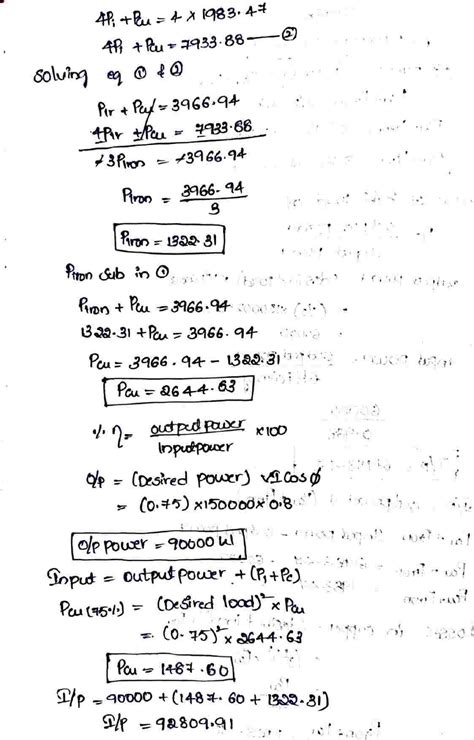 4Pi + Pcu = 4 x 1983.47
4Pi + Pcu = 7933.88 — ②
Solving eq ① & ②
Pir + Pcu = 3966.94
4Pir ± Pcu = 7933.88
-3Piron = -3966.94
Piron = 3966.94
3
Piron = 1322.31
Piron Sub in ①
Piron + Pcu = 3966.94
1322.31 + Pcu = 3966.94
Pcu = 3966.94 - 1322.31
Pcu = 2644.63
% η = output power x 100
Input power
O/p = (Desired power) VI cos φ
= (0.75) x 150000 x 0.8
O/p power = 90000 W
Input = output power + (Pi + Pc)
Pcu (75%) = (Desired load)² x Pcu
= (0.75)² x 2644.63
Pcu = 1487.60
I/p = 90000 + (1487.60 + 1322.31)
I/p = 92809.91